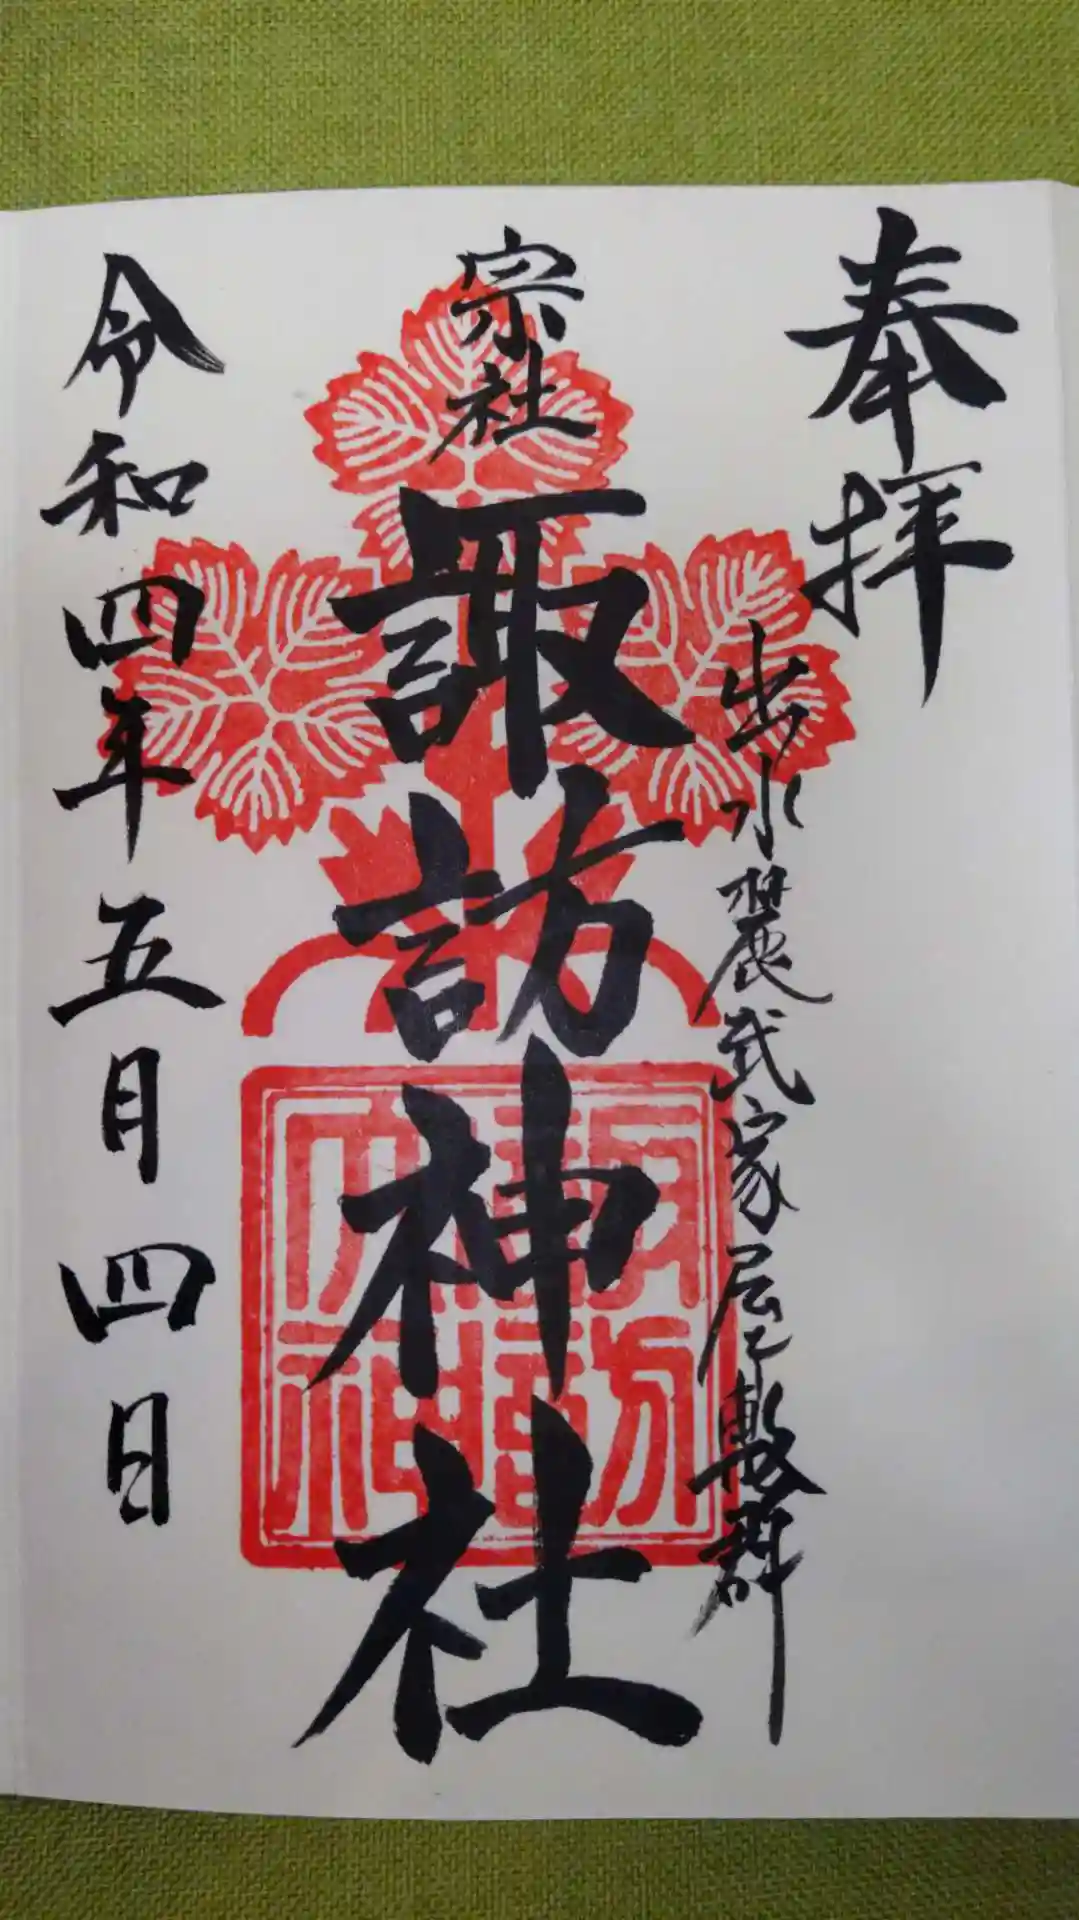 奉拝
出水麓武家屋敷群
宗社
諏訪神社
令和四年五月四日